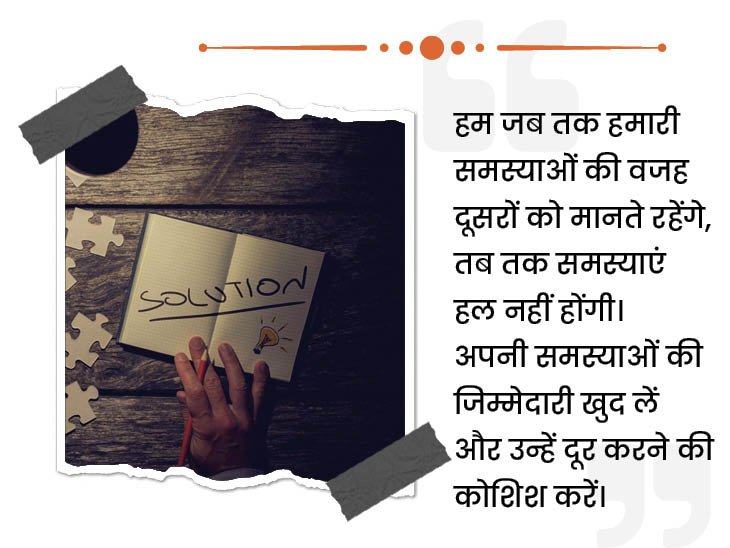 हम जब तक हमारी
समस्याओं की वजह
दूसरों को मानते रहेंगे,
तब तक समस्याएं
हल नहीं होंगी।
अपनी समस्याओं की
जिम्मेदारी खुद लें
और उन्हें दूर करने की
कोशिश करें।
SOLUTION